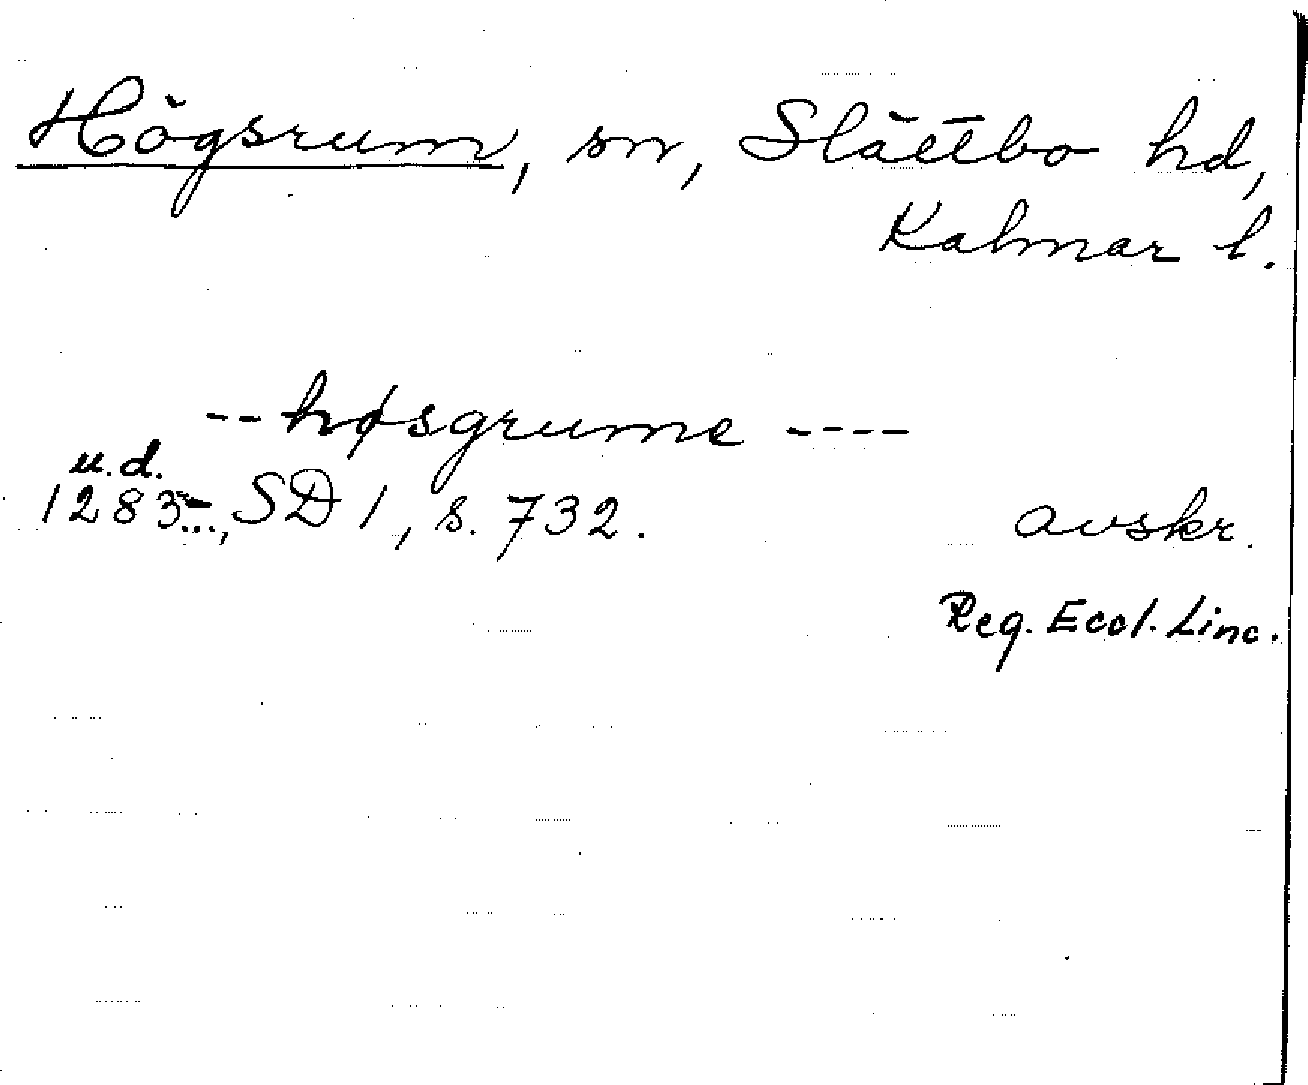 Högsrum, sn, Slättbo hd,
Kalmar l.
-- høsgrume ----
u.d.
1283-..., SD 1, s. 732. avskr.
Reg. Eccl. Linc.